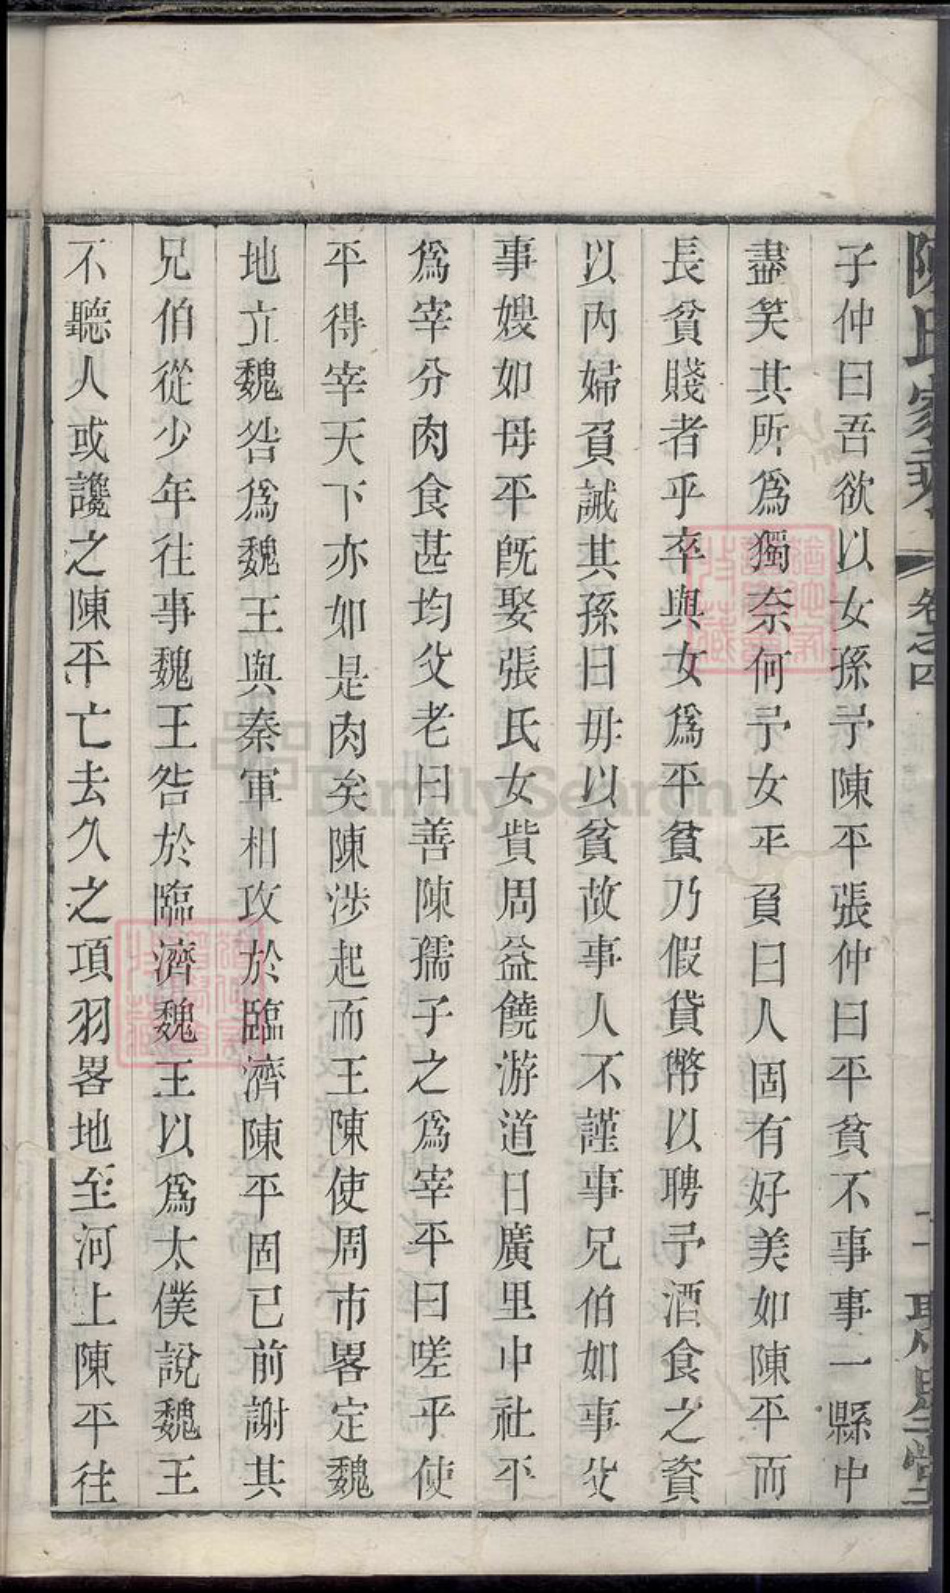 陳氏家乘
卷之四
子仲曰吾欲以女孫予陳平張仲曰平貧不事事一縣中
盡笑其所爲獨奈何予女平負曰人固有好美如陳平而
長貧賤者乎卒與女爲平貧乃假貸幣以聘予酒食之資
以內婦負誡其孫曰毋以貧故事人不謹事兄伯如事父
事嫂如母平旣娶張氏女貲周益饒游道日廣里中社平
爲宰分肉食甚均父老曰善陳孺子之爲宰平曰嗟乎使
平得宰天下亦如是肉矣陳涉起而王陳使周市畧定魏
地立魏咎爲魏王與秦軍相攻於臨濟陳平固已前謝其
兄伯從少年往事魏王咎於臨濟魏王以爲太僕說魏王
不聽人或讒之陳平亡去久之項羽畧地至河上陳平往
FamilySearch